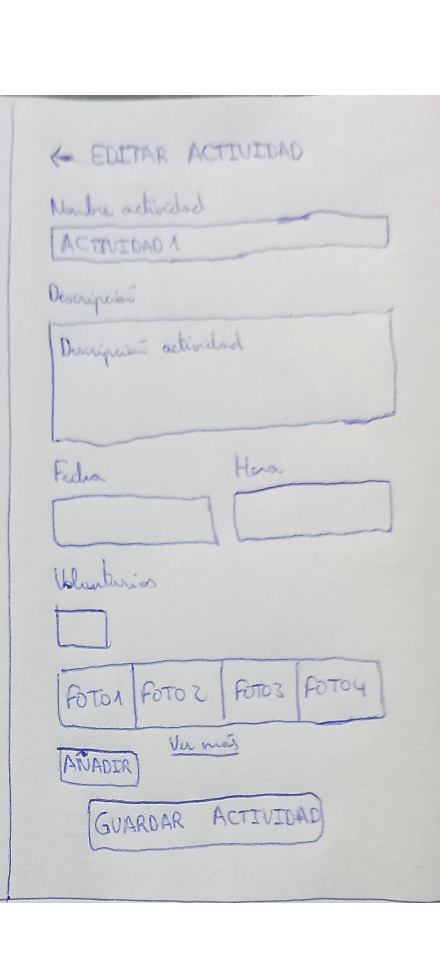 ← EDITAR ACTIVIDAD
Nombre actividad
ACTIVIDAD 1
Descripción
Descripción actividad
Fecha Hora
Voluntarios
FOTO1 FOTO2 FOTO3 FOTO4
Ver más
AÑADIR
GUARDAR ACTIVIDAD